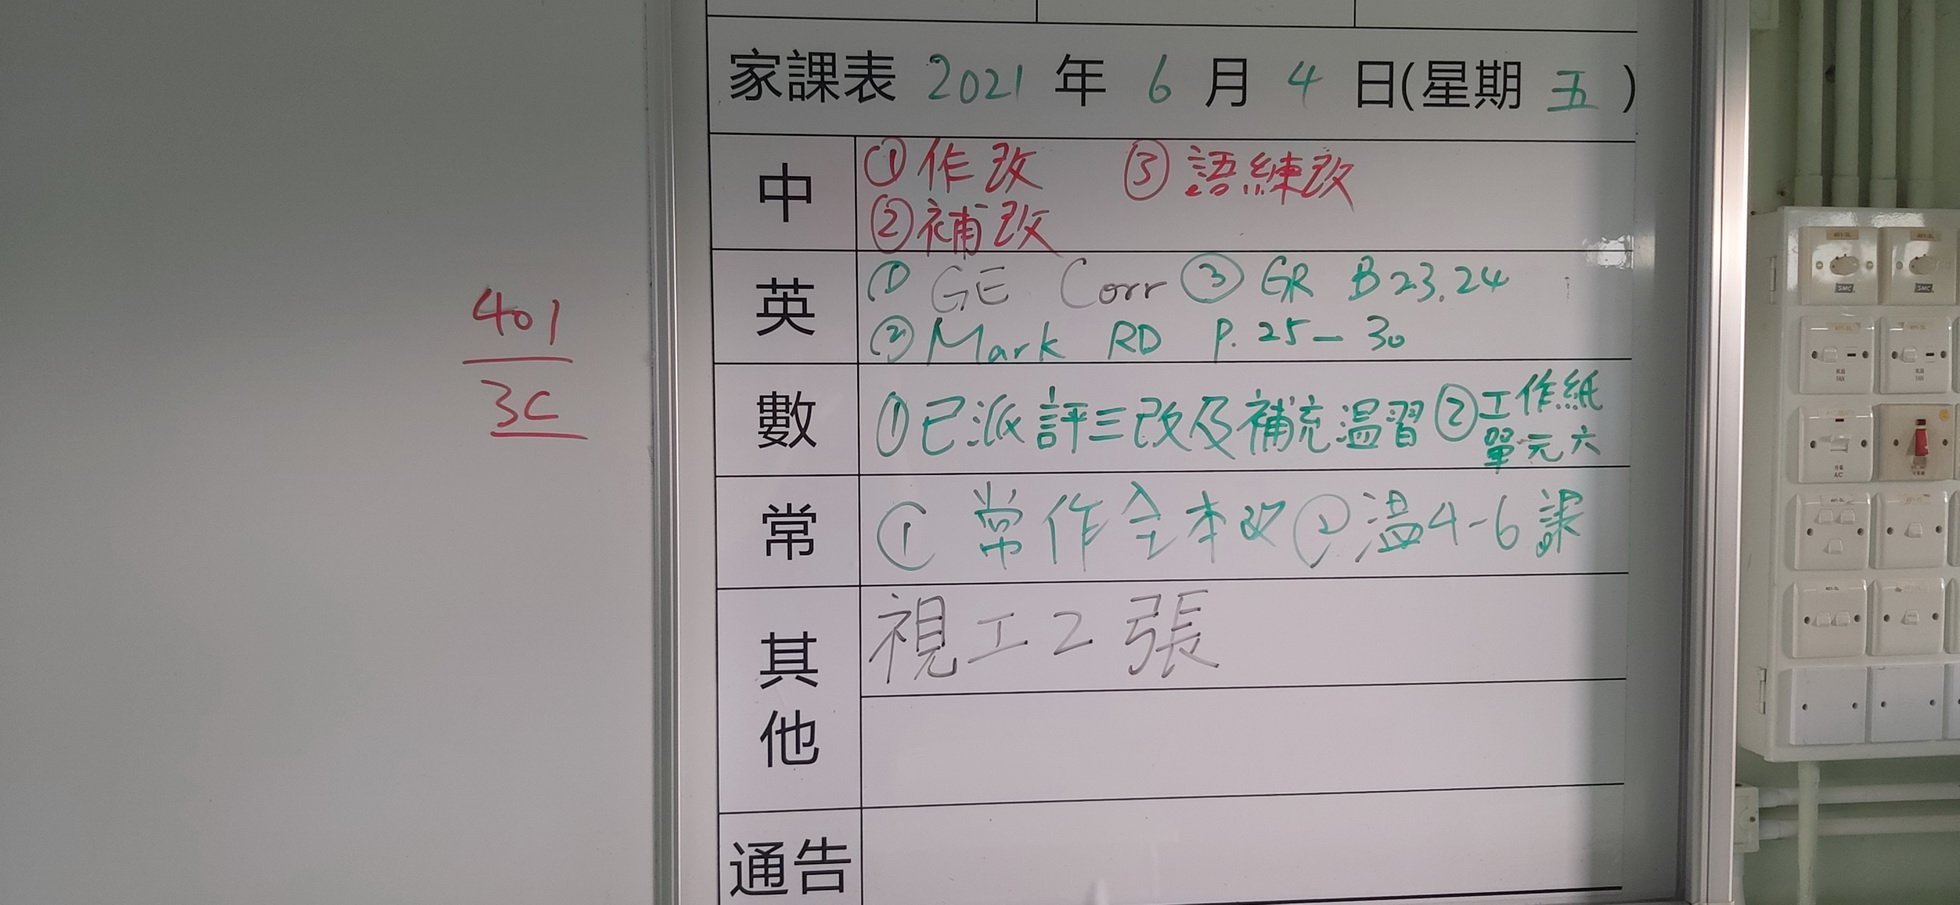 401
3C
家課表 2021 年 6 月 4 日(星期 五 )
中
①作改 ③語練改
②補改
英
① GE Corr ③ GR B23,24
② Mark RD P. 25-30
數
①已派評三改及補充溫習 ②工作紙
單元六
常
① 常作全本改 ② 溫4-6課
其他
視工2張
通告